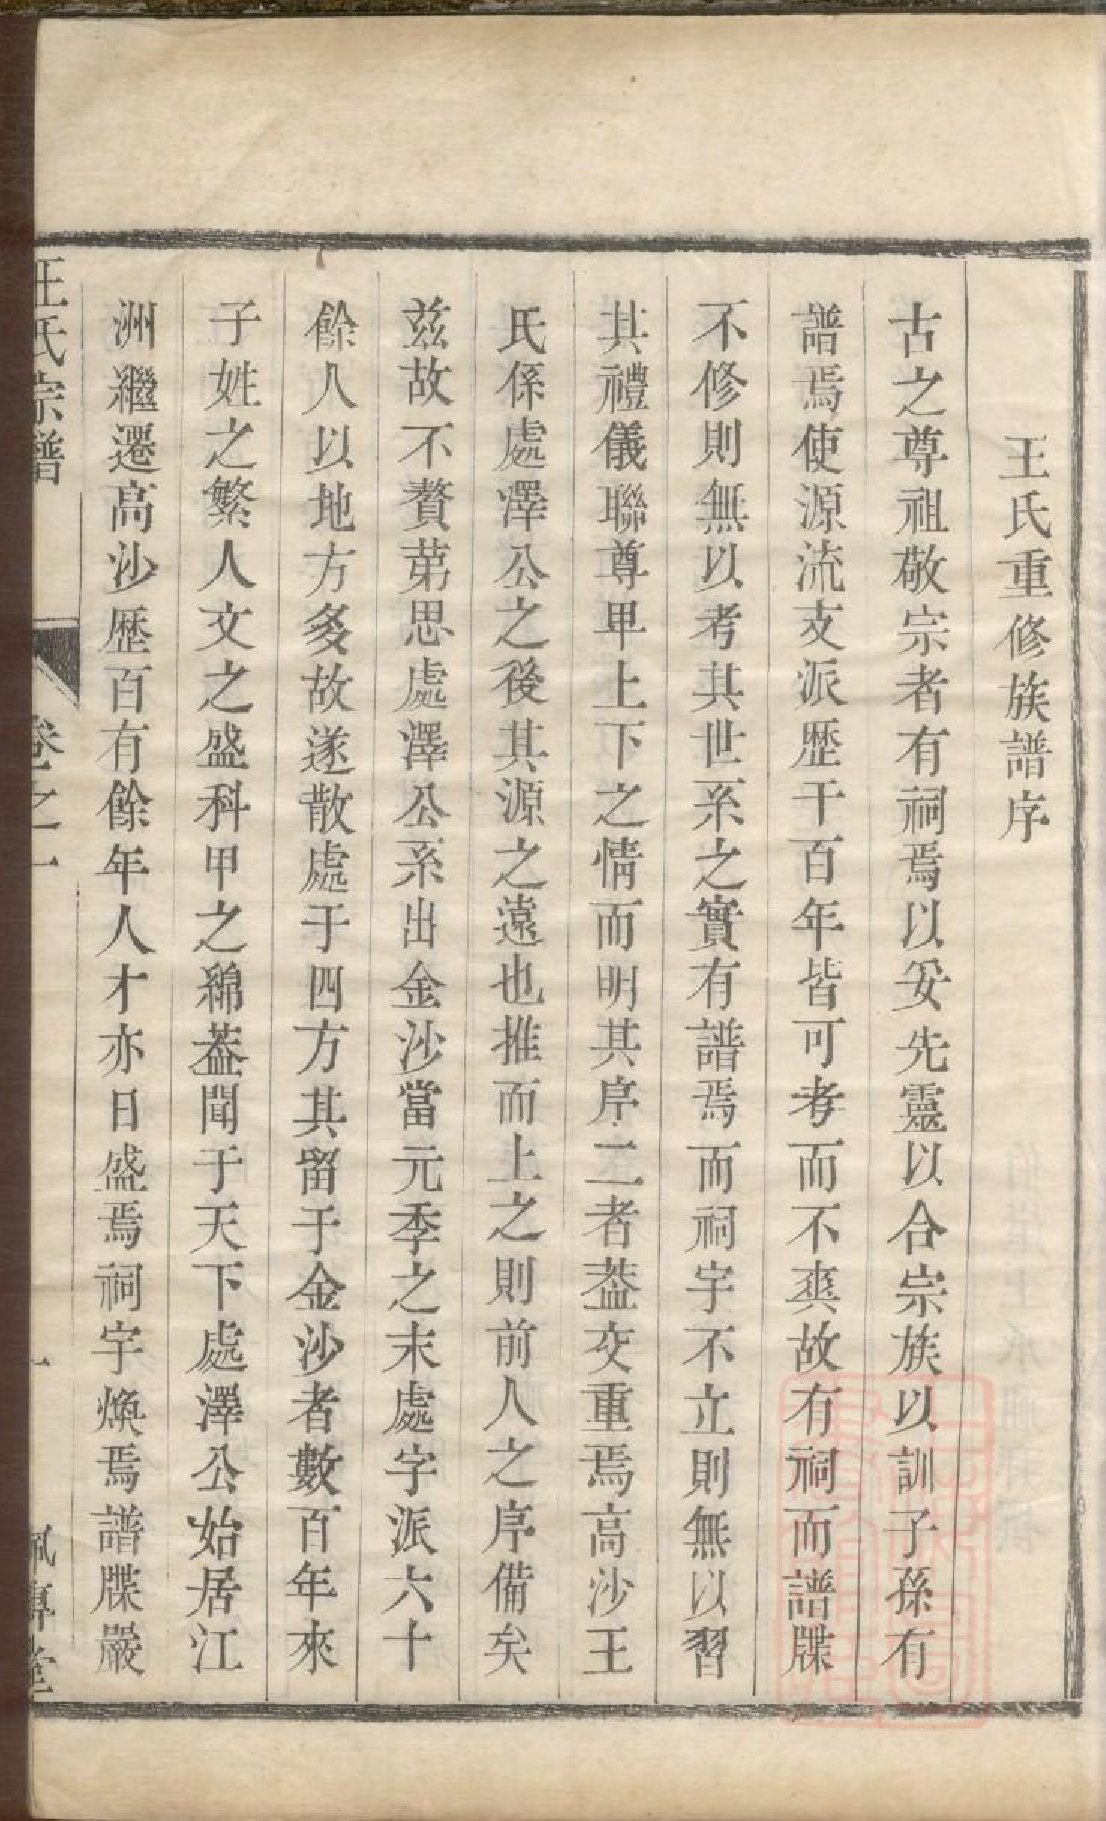 王氏重修族譜序
古之尊祖敬宗者有祠焉以妥先靈以合宗族以訓子孫有
譜焉使源流支派歷千百年皆可考而不爽故有祠而譜牒
不修則無以考其世系之實有譜焉而祠宇不立則無以習
其禮儀聯尊卑上下之情而明其序二者葢交重焉高沙王
氏係處澤公之後其源之遠也推而上之則前人之序備矣
茲故不贅苐思處澤公系出金沙當元季之末處字派六十
餘人以地方多故遂散處于四方其留于金沙者數百年來
子姓之繁人文之盛科甲之綿葢聞于天下處澤公始居江
洲繼遷高沙歷百有餘年人才亦日盛焉祠宇煥焉譜牒嚴
王氏宗譜 卷之一 一